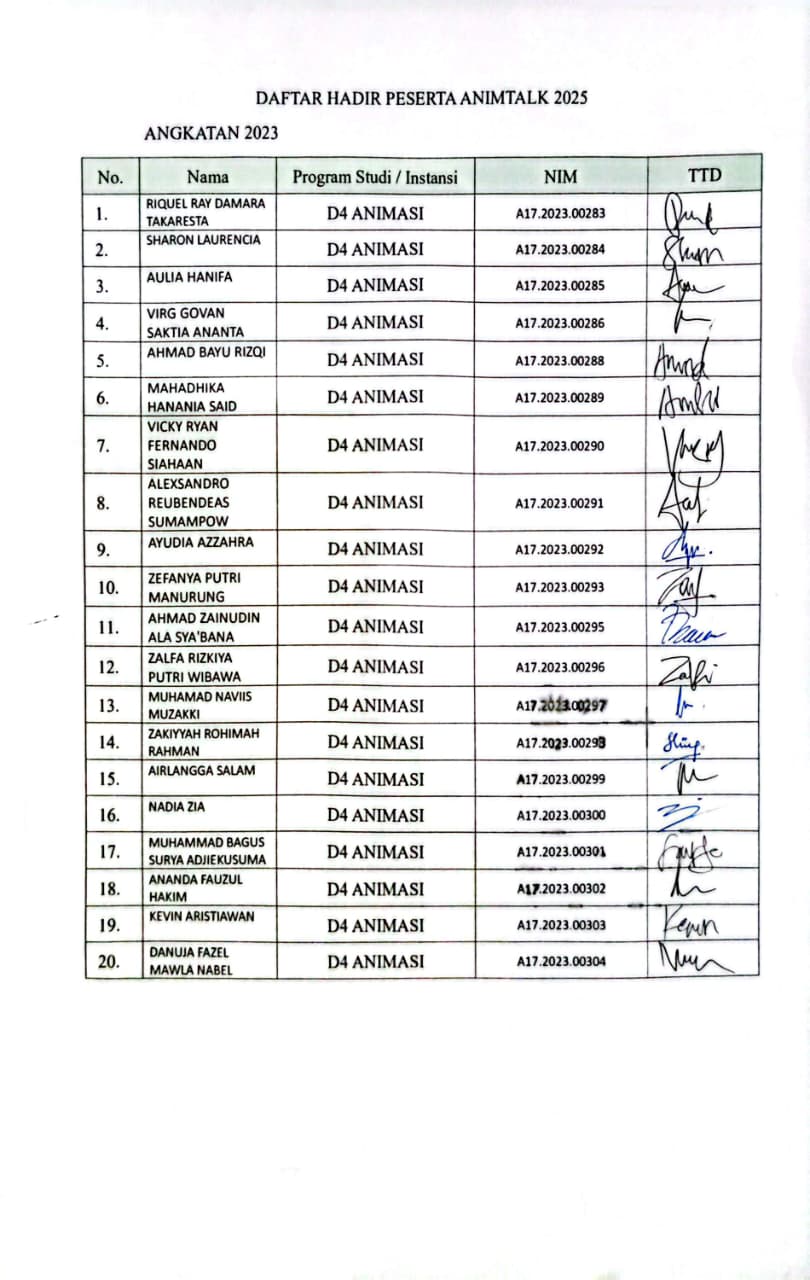 DAFTAR HADIR PESERTA ANIMTALK 2025
ANGKATAN 2023
No. Nama Program Studi / Instansi NIM TTD
1. RIQUEL RAY DAMARA TAKARESTA D4 ANIMASI A17.2023.00283
2. SHARON LAURENCIA D4 ANIMASI A17.2023.00284
3. AULIA HANIFA D4 ANIMASI A17.2023.00285
4. VIRG GOVAN SAKTIA ANANTA D4 ANIMASI A17.2023.00286
5. AHMAD BAYU RIZQI D4 ANIMASI A17.2023.00288
6. MAHADHIKA HANANIA SAID D4 ANIMASI A17.2023.00289
7. VICKY RYAN FERNANDO SIAHAAN D4 ANIMASI A17.2023.00290
8. ALEXSANDRO REUBENDEAS SUMAMPOW D4 ANIMASI A17.2023.00291
9. AYUDIA AZZAHRA D4 ANIMASI A17.2023.00292
10. ZEFANYA PUTRI MANURUNG D4 ANIMASI A17.2023.00293
11. AHMAD ZAINUDIN ALA SYA'BANA D4 ANIMASI A17.2023.00295
12. ZALFA RIZKIYA PUTRI WIBAWA D4 ANIMASI A17.2023.00296
13. MUHAMAD NAVIIS MUZAKKI D4 ANIMASI A17.2023.00297
14. ZAKIYYAH ROHIMAH RAHMAN D4 ANIMASI
15. AIRLANGGA SALAM D4 ANIMASI A17.2023.00299
16. NADIA ZIA D4 ANIMASI A17.2023.00300
17. MUHAMMAD BAGUS SURYA ADJIEKUSUMA D4 ANIMASI A17.2023.00301
18. ANANDA FAUZUL HAKIM D4 ANIMASI A17.2023.00302
19. KEVIN ARISTIAWAN D4 ANIMASI A17.2023.00303 Kevin
20. DANUJA FAZEL MAWLA NABEL D4 ANIMASI A17.2023.00304